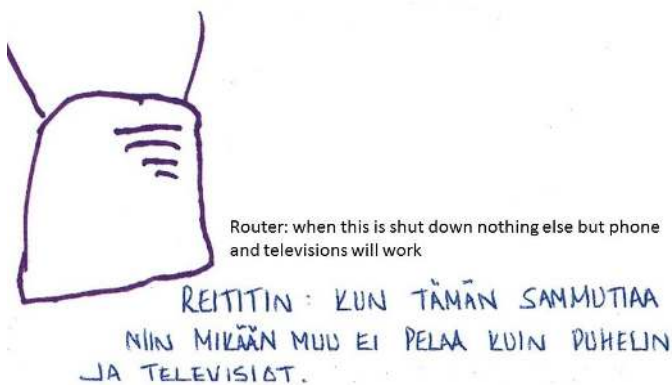 Router: when this is shut down nothing else but phone
and televisions will work
REITITIN: KUN TÄMÄN SAMMUTTAA
NIIN MIKÄÄN MUU EI PELAA KUIN PUHELIN
JA TELEVISIOT.